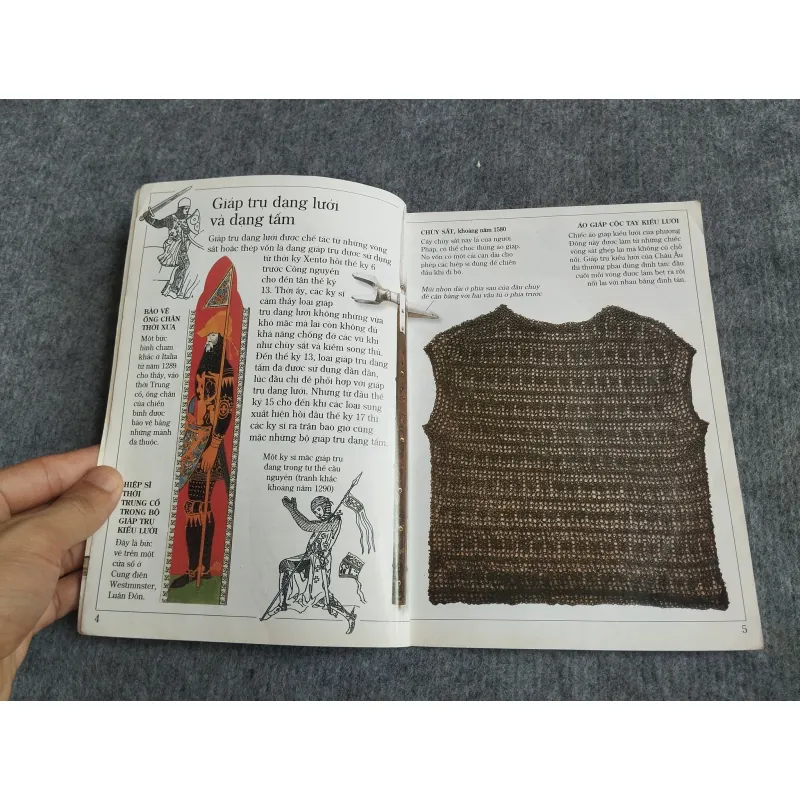 Giáp trụ dạng lưới
và dạng tấm
Giáp trụ dạng lưới được chế tác từ những vòng
sắt hoặc thép vốn là dạng giáp trụ được sử dụng
từ thời kỳ Xentơ hồi thế kỷ 6
trước Công nguyên
cho đến tận thế kỷ
13. Thời ấy, các kỵ sĩ
cảm thấy loại giáp
trụ dạng lưới không những vừa
khó mặc mà lại còn không đủ
khả năng chống đỡ các vũ khí
như chùy sắt và kiếm song thủ.
Đến thế kỷ 13, loại giáp trụ dạng
tấm đã được sử dụng dần dần,
lúc đầu chỉ để phối hợp với giáp
trụ dạng lưới. Nhưng từ đầu thế
kỷ 15 cho đến khi các loại súng
xuất hiện hồi đầu thế kỷ 17 thì
các kỵ sĩ ra trận bao giờ cũng
mặc những bộ giáp trụ dạng tấm.
BẢO VỆ
ỐNG CHÂN
THỜI XƯA
Một bức
hình chạm
khắc ở Italia
từ năm 1289
cho thấy, vào
thời Trung
cổ, ống chân
của chiến
binh được
bảo vệ bằng
những mảnh
da thuộc.
HIỆP SĨ
THỜI
TRUNG CỔ
TRONG BỘ
GIÁP TRỤ
KIỂU LƯỚI
Đây là bức
vẽ trên một
cửa sổ ở
Cung điện
Westminster,
Luân Đôn.
Một kỵ sĩ mặc giáp trụ
đang trong tư thế cầu
nguyện (tranh khắc
khoảng năm 1290)
4
CHÙY SẮT, khoảng năm 1580
Cây chùy sắt này là của người
Pháp, có thể chọc thủng áo giáp.
Nó vốn có một cái cán dài cho
phép các hiệp sĩ dùng để chiến
đấu khi đi bộ.
Mũi nhọn dài ở phía sau của đầu chùy
để cân bằng với hai vấu tù ở phía trước
ÁO GIÁP CỘC TAY KIỂU LƯỚI
Chiếc áo giáp kiểu lưới của phương
Đông này được làm từ những chiếc
vòng sắt ghép lại mà không có chỗ
nối. Giáp trụ kiểu lưới của Châu Âu
thì thường phải dùng đinh tán: đầu
cuối mỗi vòng được làm bẹt ra rồi
nối lại với nhau bằng đinh tán.
5